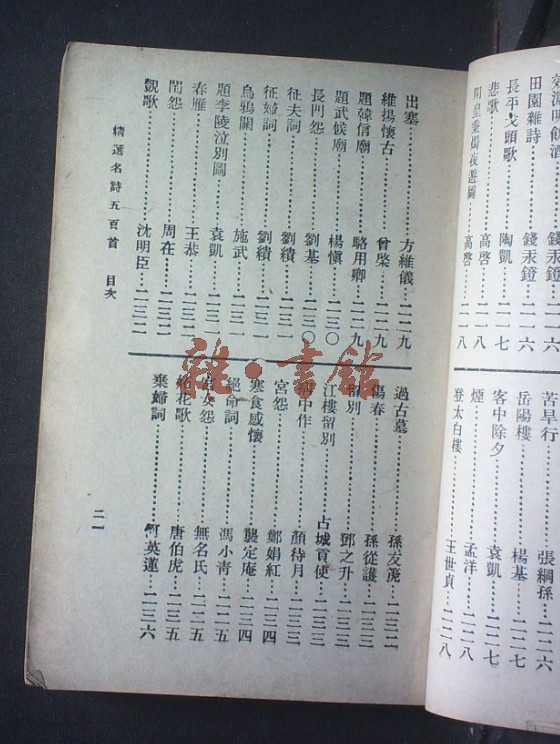 田園雜詩 錢汞鐙 二一六
長平戈頭歌 陶凱 二一七
悲歌 高啓 二一八
明皇秉燭夜遊圖 高啓 二一八
苦旱行 張綱孫 二二六
岳陽樓 楊基 二二七
客中除夕 袁凱 二二七
煙 孟洋 二二八
登太白樓 王世貞 二二八
出塞 方維儀 二二九
維揚懷古 曾棨 二二九
題韓信廟 駱用卿 二二九
題武候廟 楊愼 二三〇
長門怨 劉基 二三〇
征夫詞 劉績 二三一
征婦詞 劉績 二三一
烏鴉關 施武 二三一
題李陵泣別圖 袁凱 二三一
春雁 王恭 二三二
閨怨 周在 二三二
凱歌 沈明臣 二三二
過古墓 孫友篪 二三二
傷春 孫從護 二三三
留別 鄧之升 二三三
江樓留別 古城貢使 二三三
中作 顏待月 二三三
宮怨 鄭娟紅 二三四
寒食感懷 龔定庵 二三四
絕命詞 馮小青 二二五
女怨 無名氏 二二五
花歌 唐伯虎 二三五
棄婦詞 何英蓮 二三六
精選名詩五百首 目次
二一
雜·書館